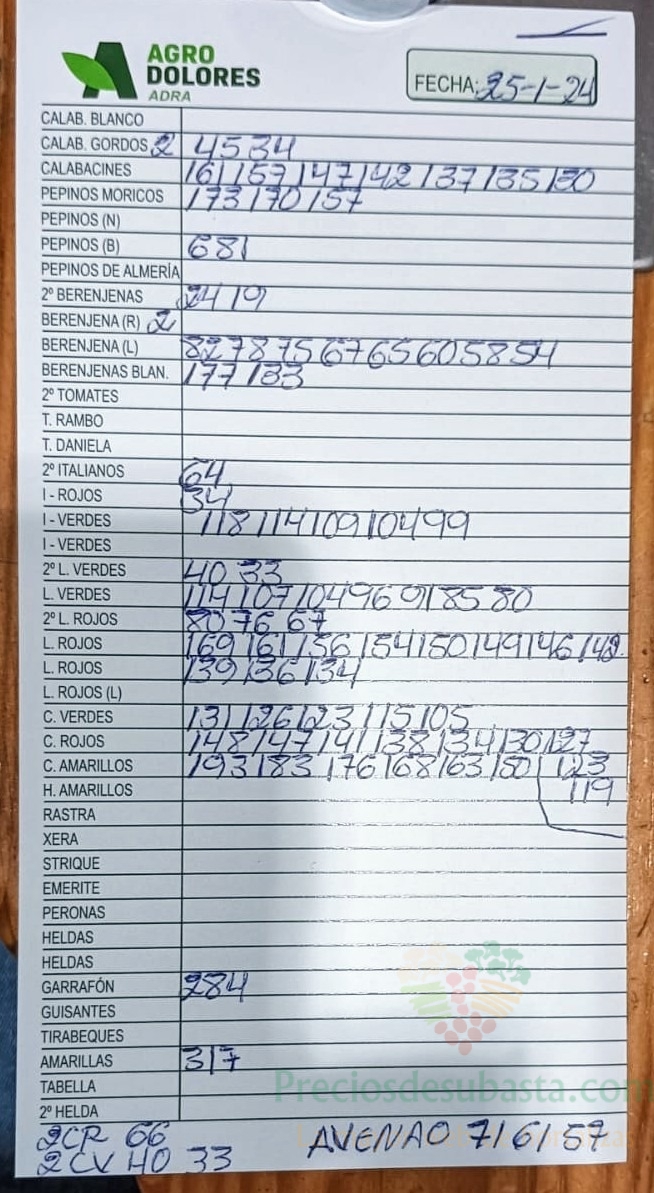 AGRO
DOLORES
ADRA
FECHA: 25-1-24
CALAB. BLANCO
CALAB. GORDOS 2 45 34
CALABACINES 161 157 147 142 137 135 130
PEPINOS MORICOS 173 170 157
PEPINOS (N)
PEPINOS (B) 68
PEPINOS DE ALMERÍA
2º BERENJENAS 24 19
BERENJENA (R) 2
BERENJENA (L) 82 78 75 67 65 60 58 54
BERENJENAS BLAN. 177 133
2º TOMATES
T. RAMBO
T. DANIELA
2º ITALIANOS 64
I - ROJOS 34
I - VERDES 118 114 109 104 99
I - VERDES
2º L. VERDES 40 33
L. VERDES 114 107 104 96 91 85 80
2º L. ROJOS 80 76 67
L. ROJOS 169 161 156 154 150 149 146 142
L. ROJOS 139 136 134
L. ROJOS (L)
C. VERDES 131 126 123 115 105
C. ROJOS 148 147 141 138 134 130 127
C. AMARILLOS 193 183 176 168 163 150 123
H. AMARILLOS 119
RASTRA
XERA
STRIQUE
EMERITE
PERONAS
HELDAS
HELDAS
GARRAFÓN 284
GUISANTES
TIRABEQUES
AMARILLAS 317
TABELLA
Preciosdesubasta.com
2º HELDA
2CR 66
2CV 40 33
AVENAO 71 61 57